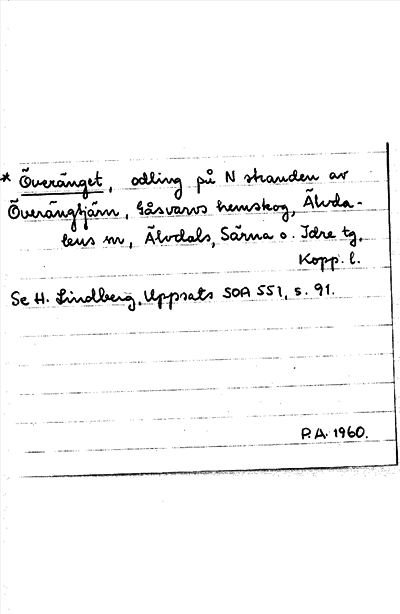 * Överänget, odling på N stranden av
Överängtjärn, Gåsvarvs hemskog, Älvda-
lens sn, Älvdals, Särna o. Idre tg,
Kopp. l.
Se H. Lindberg, Uppsats SOA 551, s. 91.
P.A. 1960.